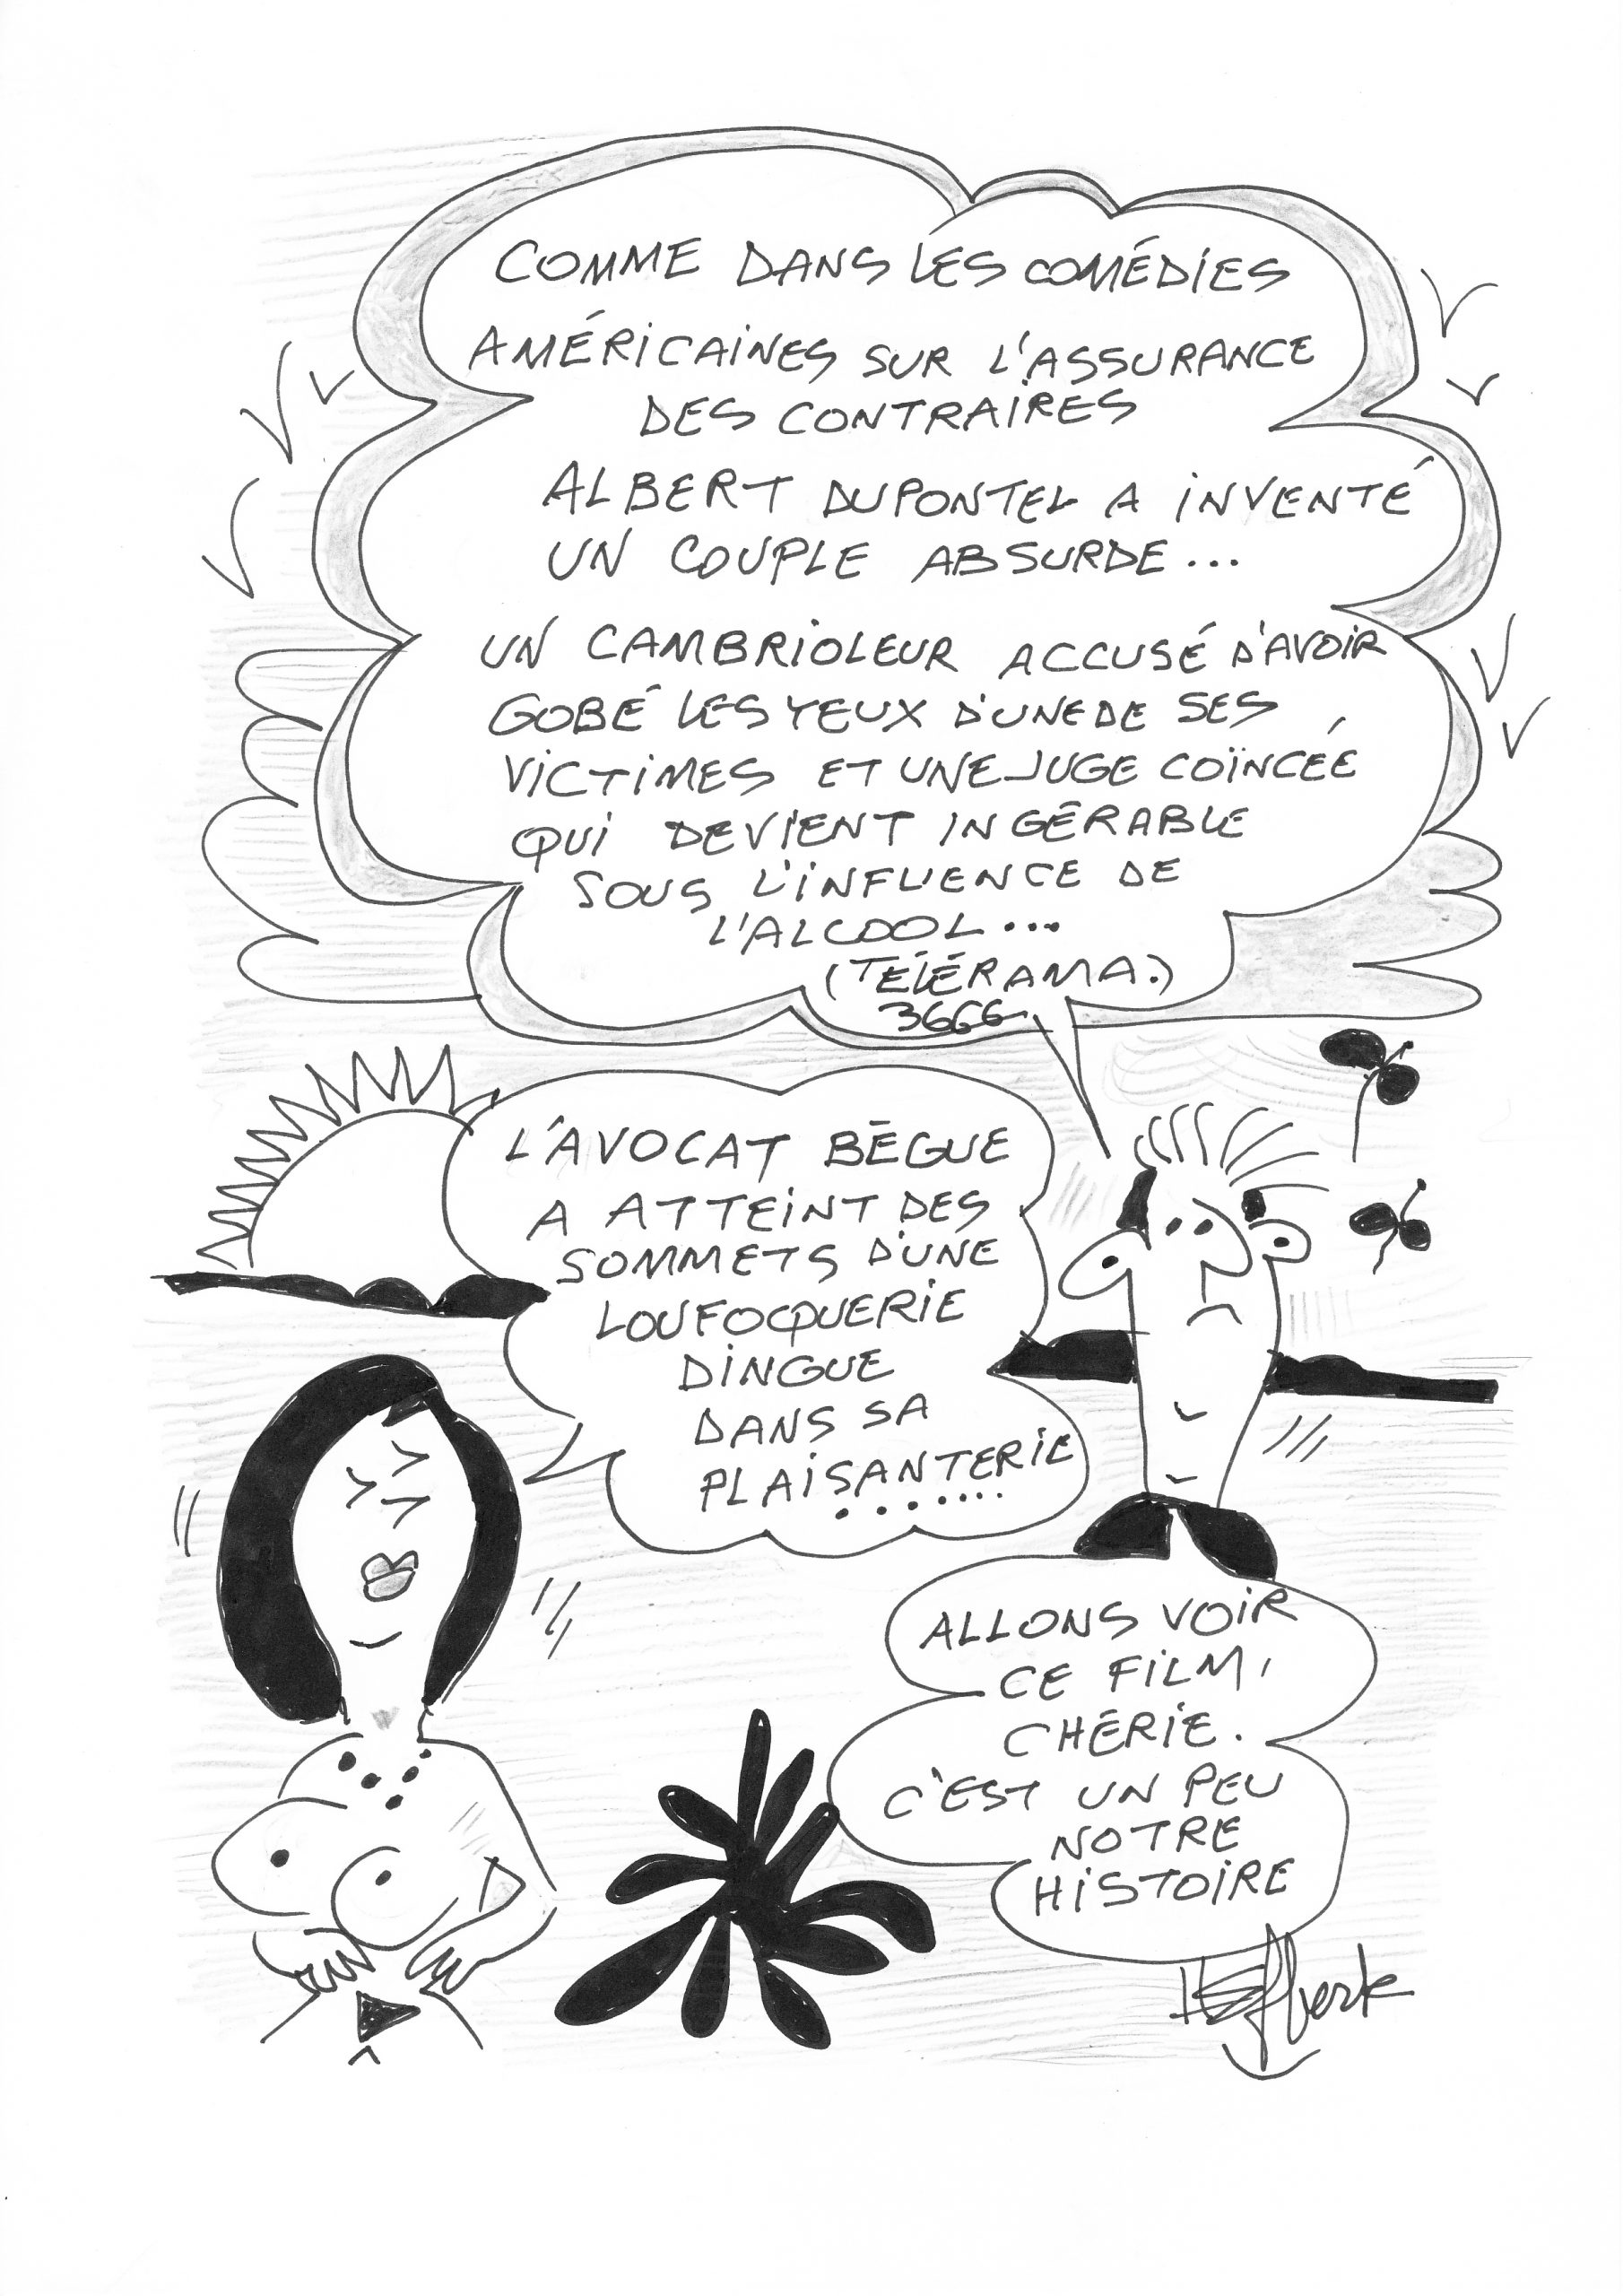 COMME DANS LES COMÉDIES
AMÉRICAINES SUR L'ASSURANCE
DES CONTRAIRES
ALBERT DUPONTEL A INVENTÉ
UN COUPLE ABSURDE...
UN CAMBRIOLEUR ACCUSÉ D'AVOIR
GOBÉ LES YEUX D'UNE DE SES
VICTIMES ET UNE JUGE COÏNCÉE
QUI DEVIENT INGÉRABLE
SOUS L'INFLUENCE DE
L'ALCOOL...
(TÉLÉRAMA.)
3666
L'AVOCAT BÈGUE
A ATTEINT DES
SOMMETS D'UNE
LOUFOCQUERIE
DINGUE
DANS SA
PLAISANTERIE
.......
ALLONS VOIR
CE FILM,
CHÉRIE.
C'EST UN PEU
NOTRE
HISTOIRE